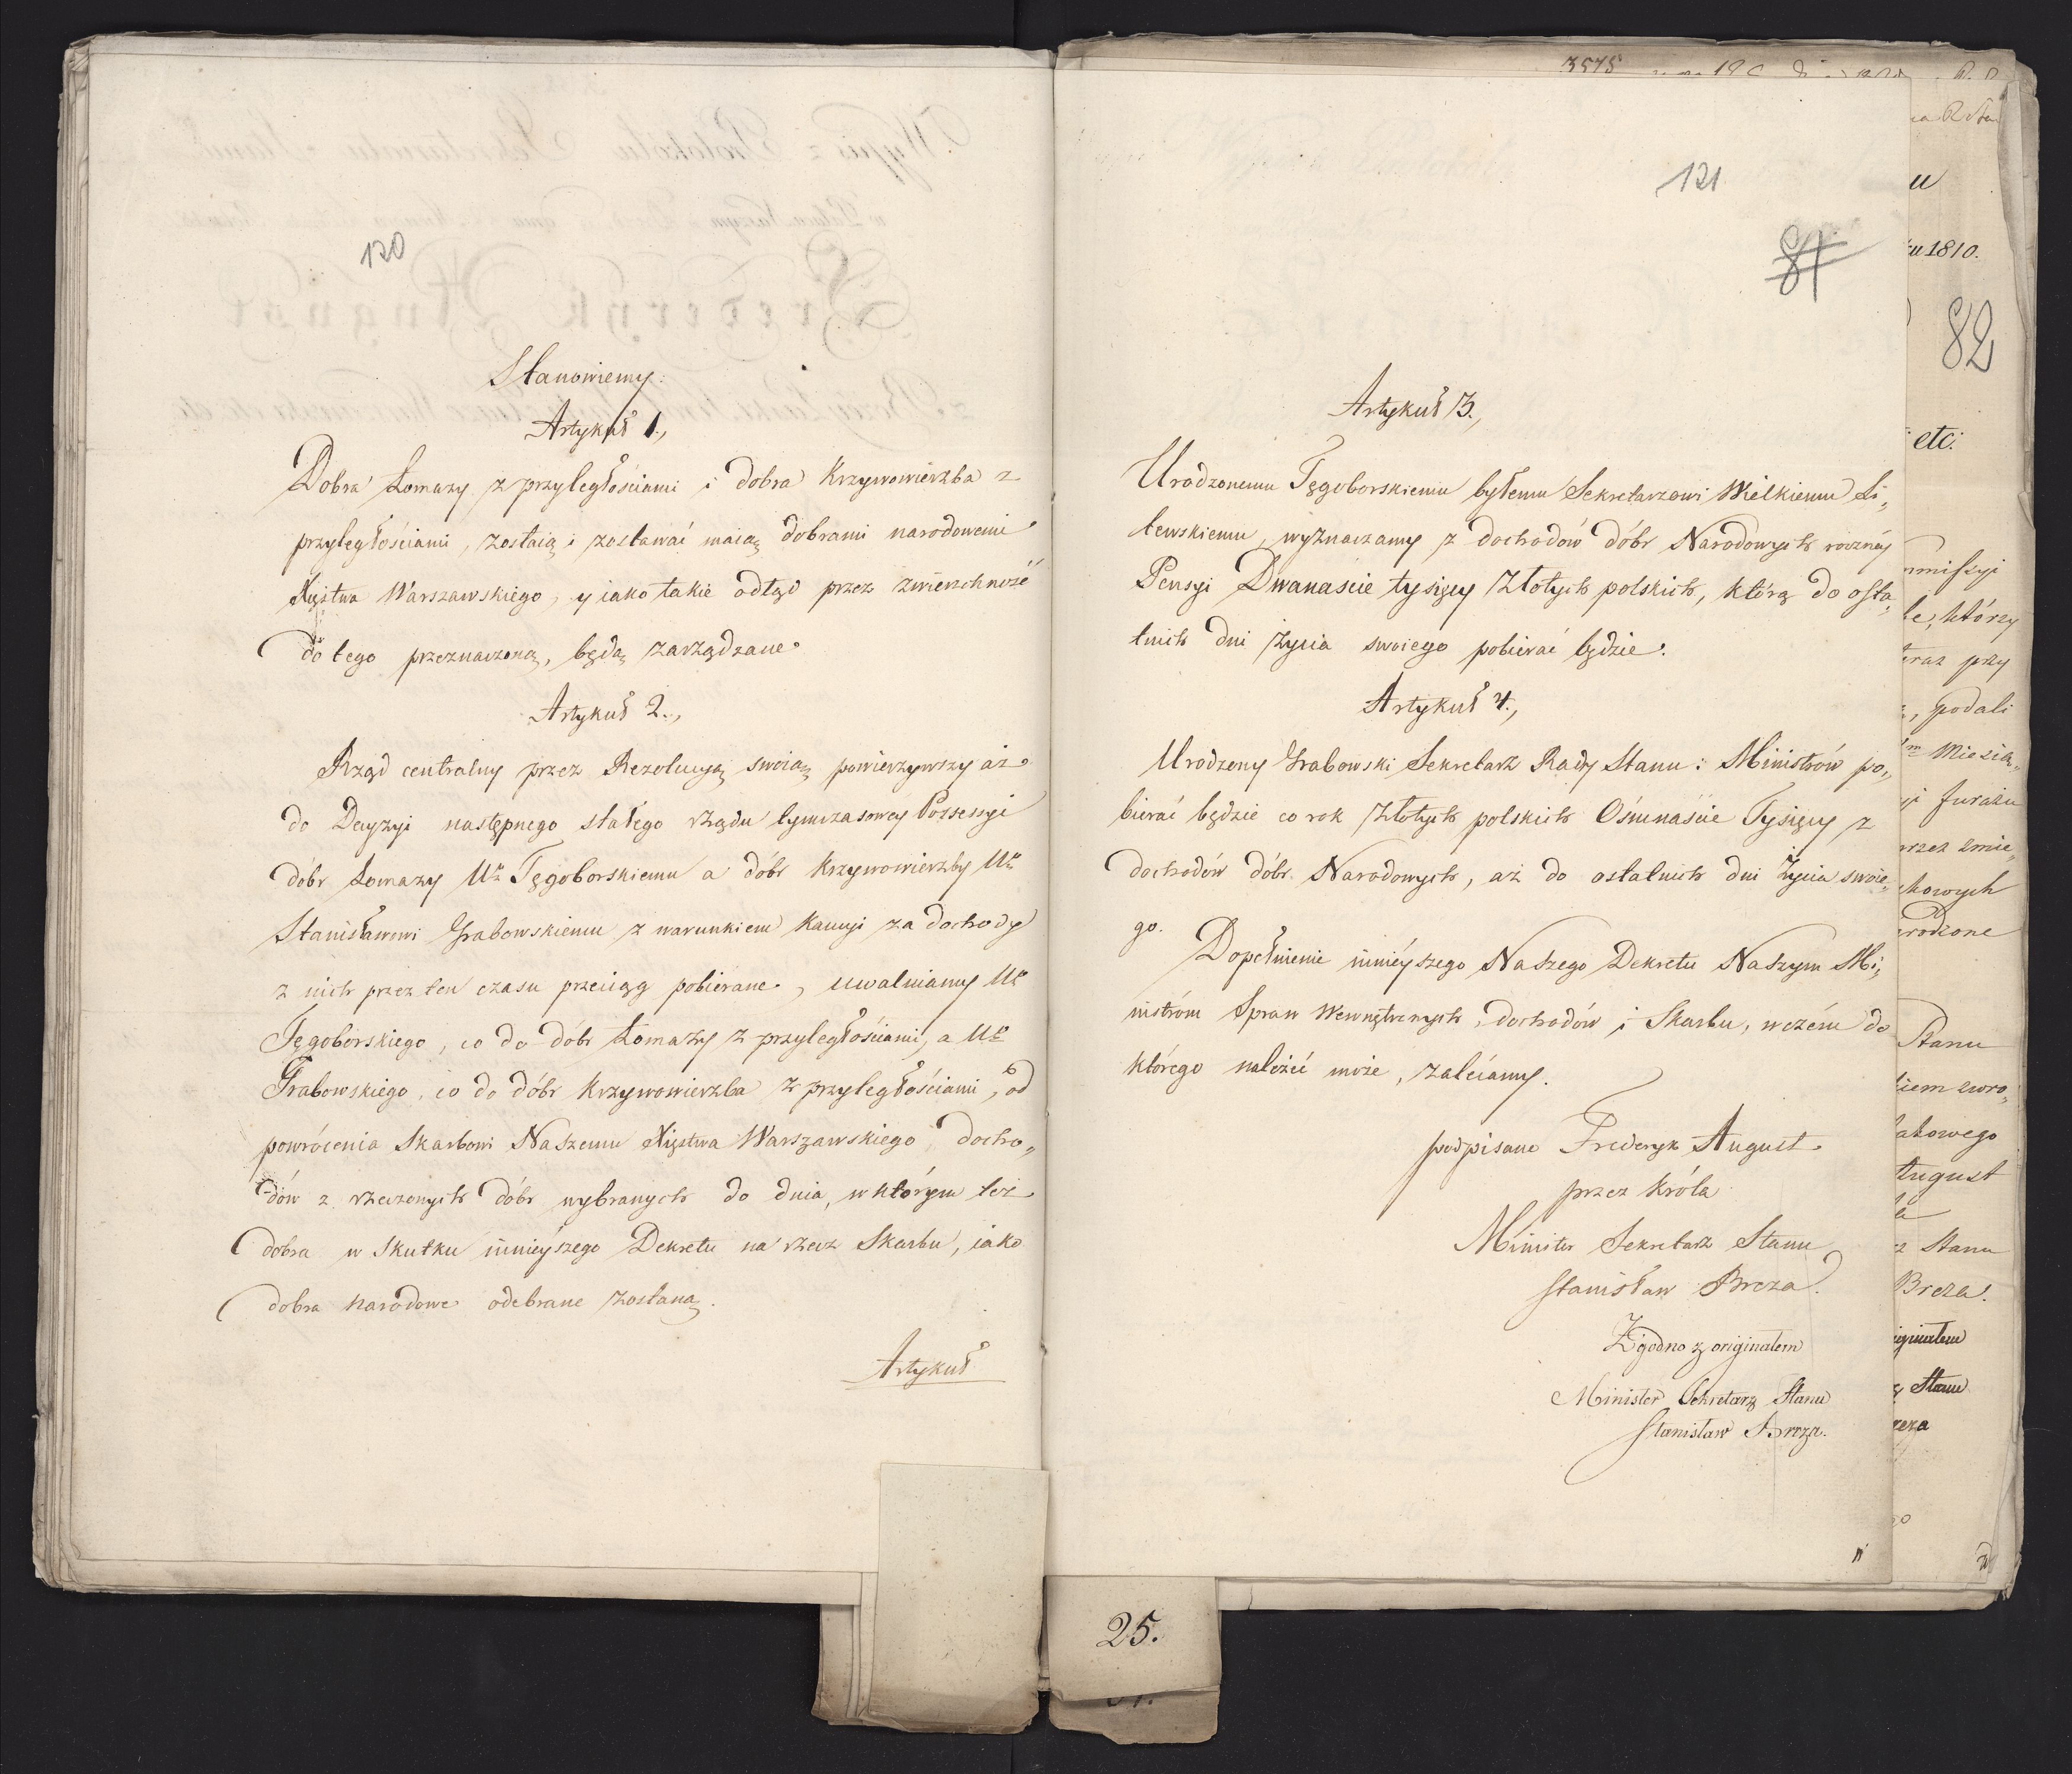 120
Stanowiemy:
Artykuł 1.,
Dobra Łomazy z przyległościami i dobra Krzywowierzba z
przyległościami, zostaią i zostawać maią dobrami narodowemi
Xięstwa Warszawskiego, y iako takie odtąd przez zwierzchność
do tego przeznaczoną, będą zarządzane.
Artykuł 2.,
Rząd centralny przez Rezolucyą swoią powierzywszy aż
do Decyzyi następnego stałego rządu tymczasowey Possessyi
dóbr Łomazy Ur. Tęgoborskiemu a dóbr Krzywowierzby Ur.
Stanisławowi Grabowskiemu z warunkiem Kaucyi za dochody
z nich przez ten czasu przeciąg pobierane, uwalniamy Ur.
Tęgoborskiego, co do dóbr Łomazy z przyległościami, a Ur.
Grabowskiego, co do dóbr Krzywowierzba z przyległościami, od
powrócenia Skarbowi Naszemu Xięstwa Warszawskiego, docho„
dów z rzeczonych dóbr wybranych do dnia, w którym też
dobra w Skutku ninieyszego Dekretu na rzecz Skarbu, iako
dobra narodowe odebrane zostaną.
Artykuł
3575
121
81
Artykuł 3.,
Urodzonemu Tęgoborskiemu byłemu Sekretarzowi Wielkiemu Li„
tewskiemu, wyznaczamy z dochodów dóbr Narodowych roczney
Pensyi Dwanaście tysięcy Złotych polskich, którą do osta„
tnich dni życia swoiego pobierać będzie.
Artykuł 4.,
Urodzony Grabowski Sekretarz Rady Stanu i Ministrów po„
bierać będzie co rok Złotych polskich Ośmnaście Tysięcy z
dochodów dóbr Narodowych, aż do ostatnich dni Życia swoie„
go.
Dopełnienie ninieyszego Naszego Dekretu Naszym Mi„
nistróm Spraw Wewnętrznych, dochodów i Skarbu, w czém do
którego należeć może, zalecamy.
podpisano Frederyk August.
przez Króla
Minister Sekretarz Stanu
Stanisław Breza.
Zgodno z originałem
Minister Sekretarz Stanu
Stanisław Breza.
u 1810.
82
etc:
którzy
przy
podali
furażu
Stanu
August
Stanu
Breza.
Stanu
25.